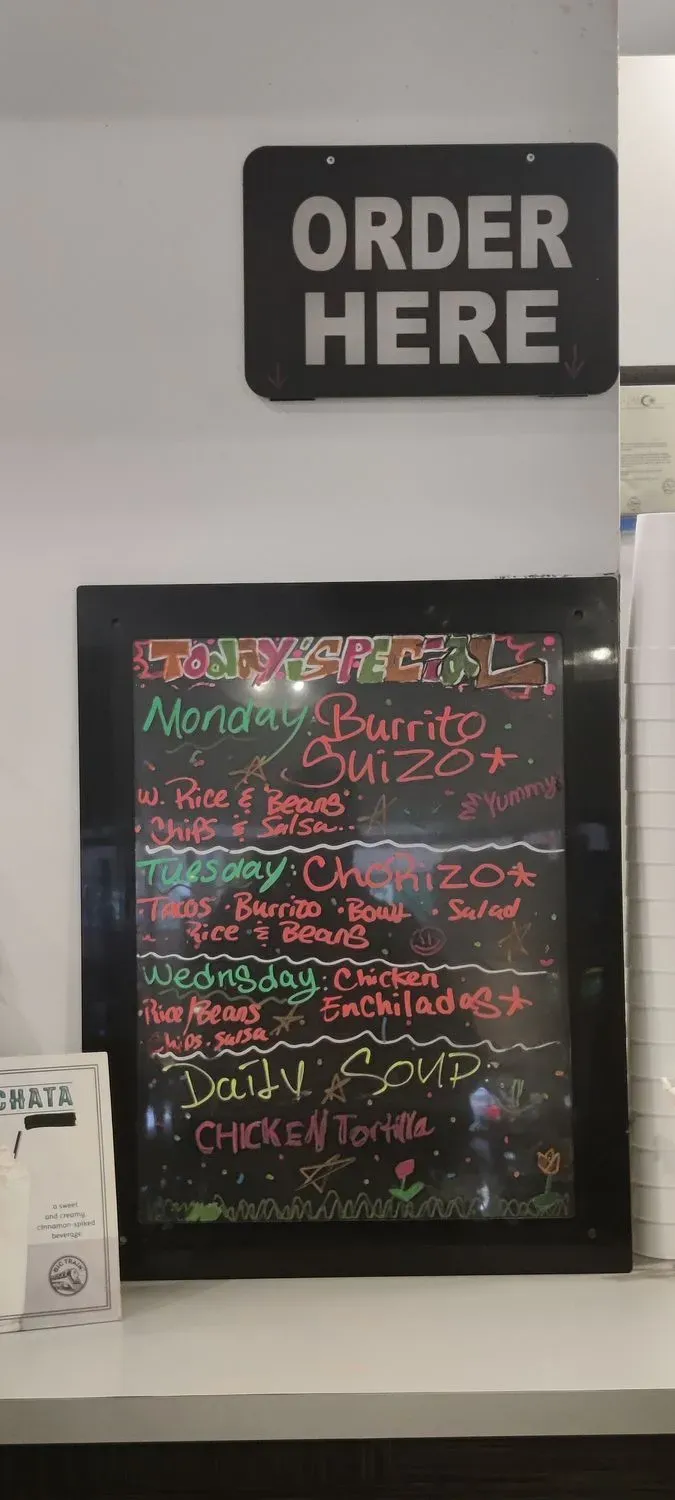 ORDER
HERE
TODAY'S SPECIAL
Monday: Burrito
Suizo*
w. Rice & Beans
• Chips & Salsa..
Yummy
Tuesday: CHORIZO*
•Tacos •Burrito •Bowl • Salad
Rice & Beans
Wednsday: Chicken
Enchiladas*
Rice/Beans
Chips • Salsa
Daily Soup
CHICKEN Tortilla
CHATA
a sweet
and creamy,
cinnamon-spiked
beverage.
BIG TRAIN